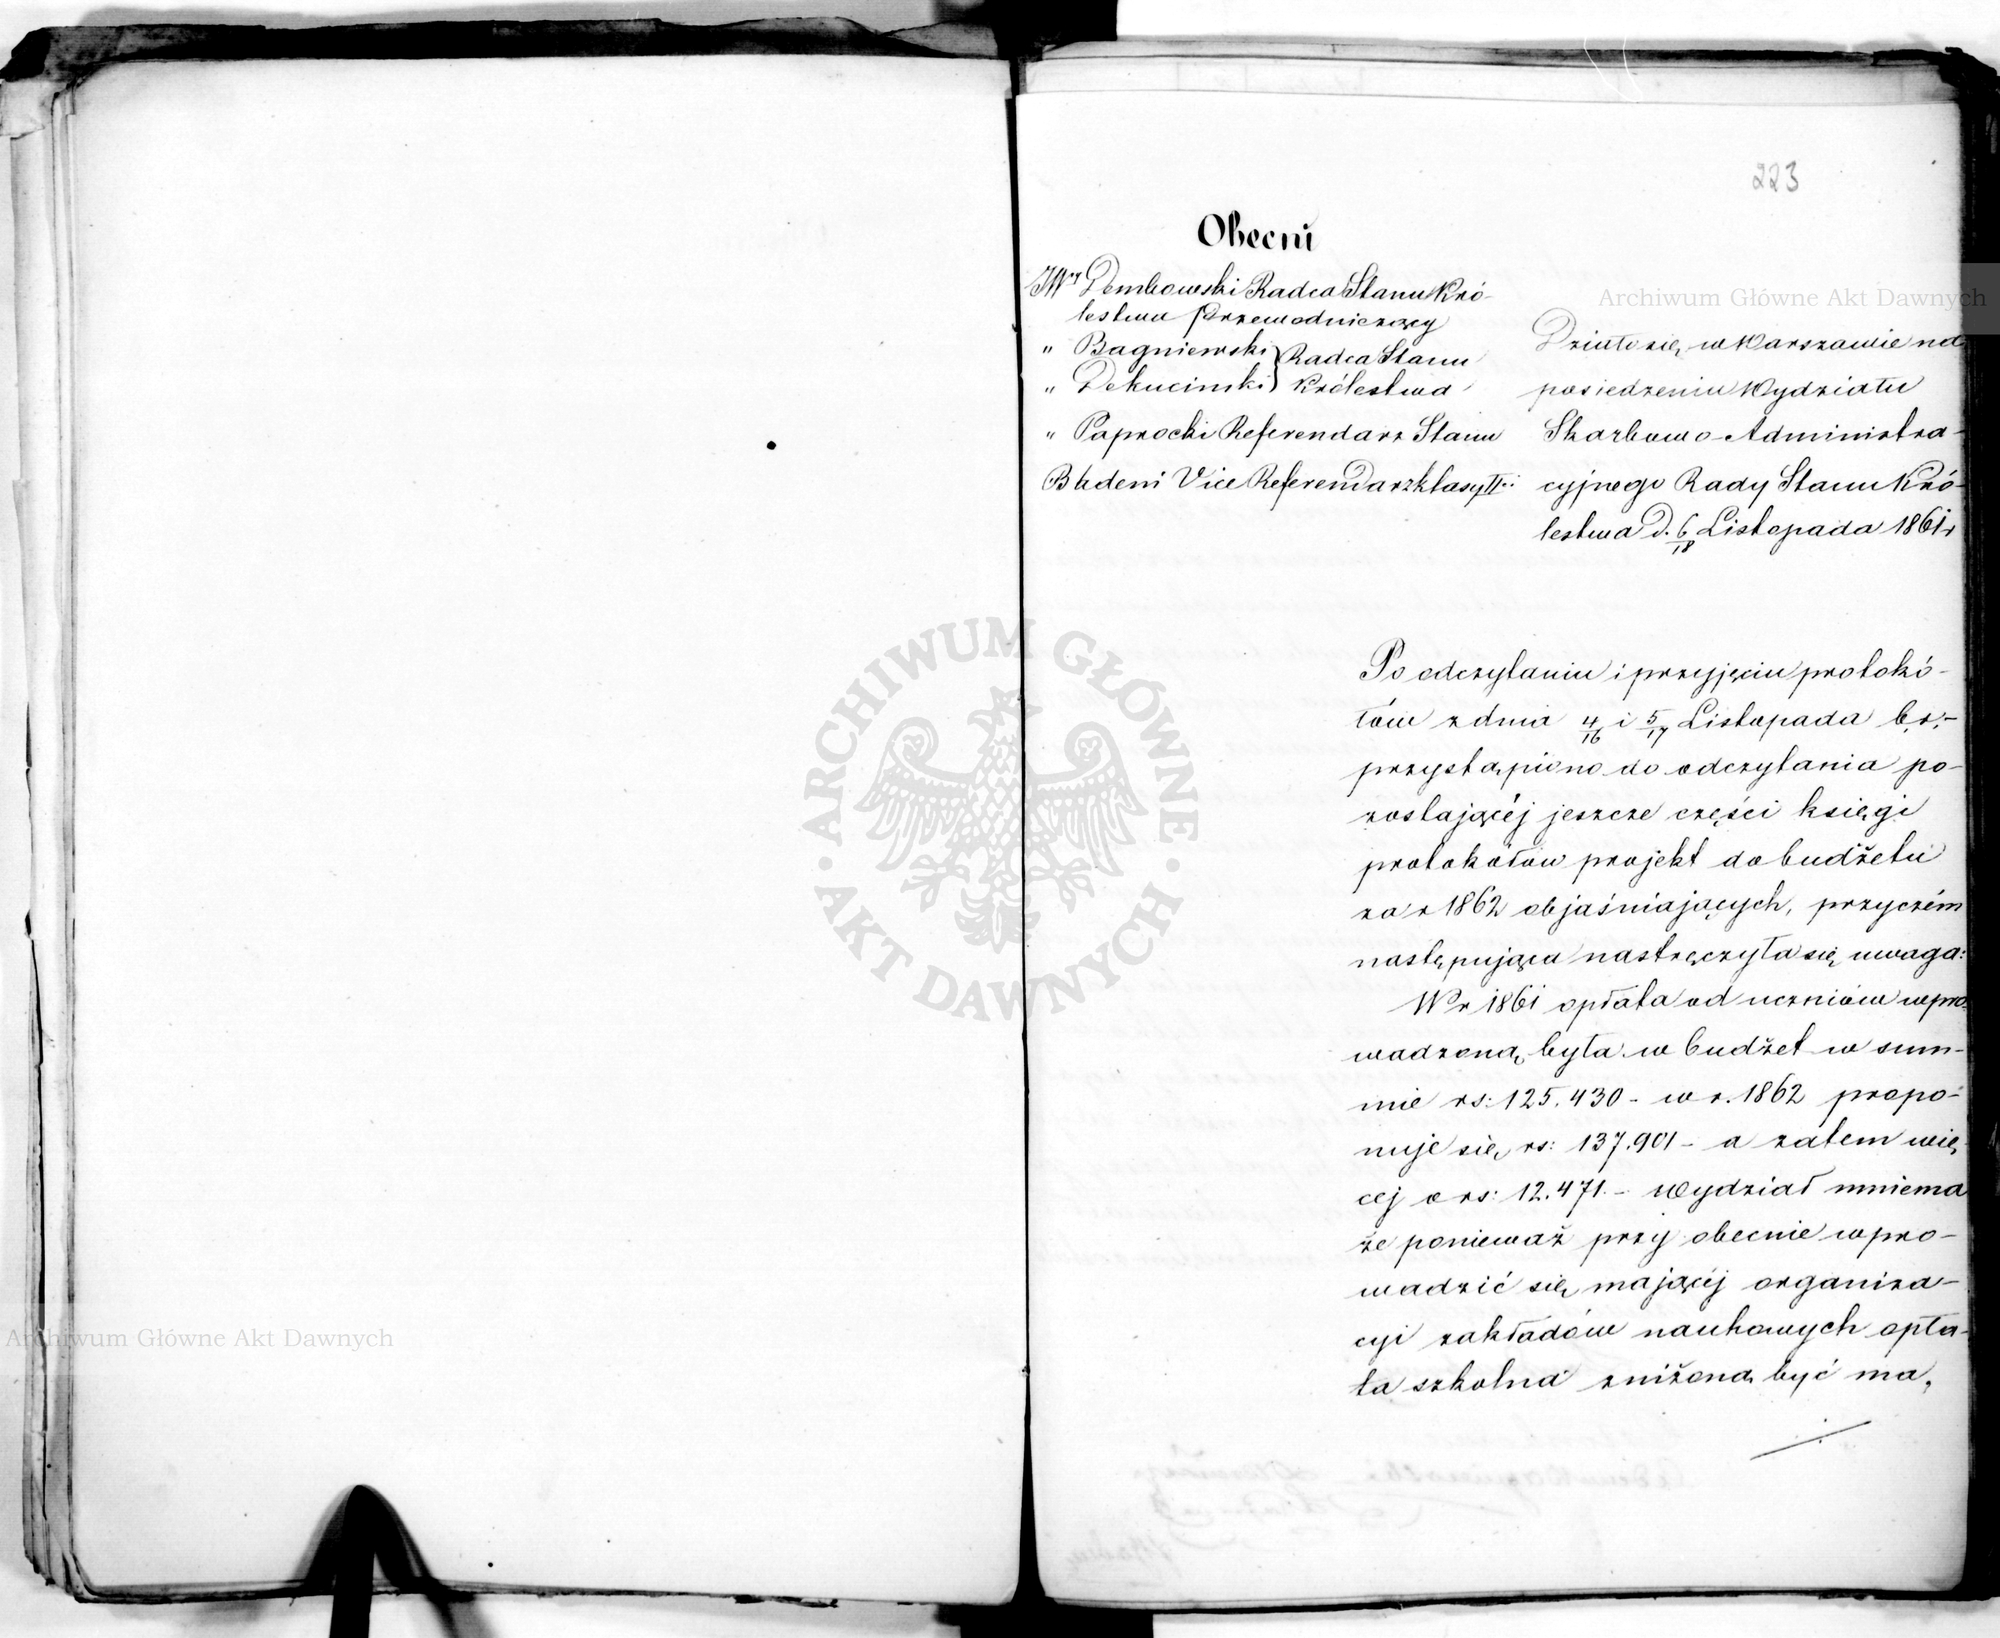 223
Obecni
JWy Dembowski Radca Stanu Kró-
lestwa Przewodniczący
" Bagniewski } Radca Stanu
" Dekuciński } Królestwa
" Paprocki Referendarz Stanu
Badeni Vice Referendarz klasy II
Działo się w Warszawie na
posiedzeniu Wydziału
Skarbowo-Administra-
cyjnego Rady Stanu Kró-
lestwa D. 6/18 Listopada 1861 r
Po odczytaniu i przyjęciu protokó-
łów z dnia 4/16 i 5/17 Listopada b.r.-
przystąpiono do odczytania po-
zostającéj jeszcze części księgi
protokółów projekt do budżetu
za r 1862 objaśniających, przyczém
następująca nastręczyła się uwaga:
W r 1861 opłata od uczniów wpro-
wadzoną była w budżet w sum-
mie rs: 125.430 - w r. 1862 propo-
nuje się rs: 137.901 - a zatem wię
cej o rs: 12.471. - Wydział mniema
że ponieważ przy obecnie wpro-
wadzić się mającéj organiza-
cyi zakładów naukowych opła-
ta szkolna zniżoną być ma,
Archiwum Główne Akt Dawnych
Archiwum Główne Akt Dawnych
ARCHIWUM GŁÓWNE
AKT DAWNYCH